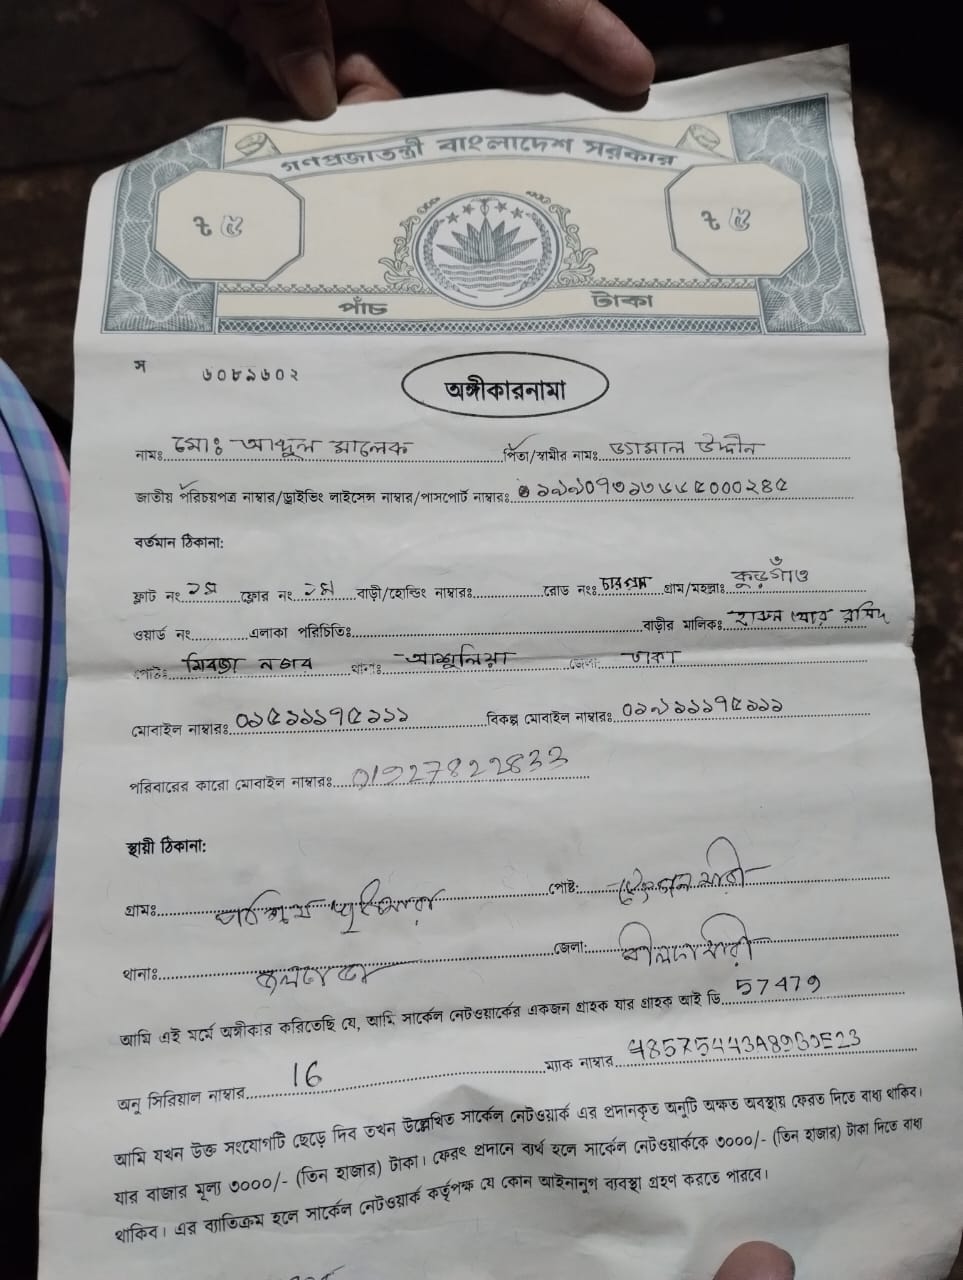 গণপ্রজাতন্ত্রী বাংলাদেশ সরকার
৳ ৫ ৳ ৫
পাঁচ টাকা
স ৬০৮৯৬০২
অঙ্গীকারনামা
নামঃ মোঃ আব্দুল মালেক পিতা/স্বামীর নামঃ জামাল উদ্দীন
জাতীয় পরিচয়পত্র নাম্বার/ড্রাইভিং লাইসেন্স নাম্বার/পাসপোর্ট নাম্বারঃ
বর্তমান ঠিকানা:
ফ্লাট নং ফ্লোর নং বাড়ী/হোল্ডিং নাম্বারঃ রোড নংঃ গ্রাম/মহল্লাঃ
ওয়ার্ড নং এলাকা পরিচিতিঃ বাড়ীর মালিকঃ
পোষ্টঃ মির্জা নগর থানাঃ আশুলিয়া জেলা: ঢাকা
মোবাইল নাম্বারঃ ০১৫১১১৭৫১১১ বিকল্প মোবাইল নাম্বারঃ
পরিবারের কারো মোবাইল নাম্বারঃ
স্থায়ী ঠিকানা:
গ্রামঃ পোষ্ট:
থানাঃ জলঢাকা জেলা: নীলফামারী
আমি এই মর্মে অঙ্গীকার করিতেছি যে, আমি সার্কেল নেটওয়ার্কের একজন গ্রাহক যার গ্রাহক আই ডি 57479
অনু সিরিয়াল নাম্বার 16 ম্যাক নাম্বার
আমি যখন উক্ত সংযোগটি ছেড়ে দিব তখন উল্লেখিত সার্কেল নেটওয়ার্ক এর প্রদানকৃত অনুটি অক্ষত অবস্থায় ফেরত দিতে বাধ্য থাকিব।
যার বাজার মূল্য ৩০০০/- (তিন হাজার) টাকা। ফেরৎ প্রদানে ব্যর্থ হলে সার্কেল নেটওয়ার্ককে ৩০০০/- (তিন হাজার) টাকা দিতে বাধ্য
থাকিব। এর ব্যতিক্রম হলে সার্কেল নেটওয়ার্ক কর্তৃপক্ষ যে কোন আইনানুগ ব্যবস্থা গ্রহণ করতে পারবে।